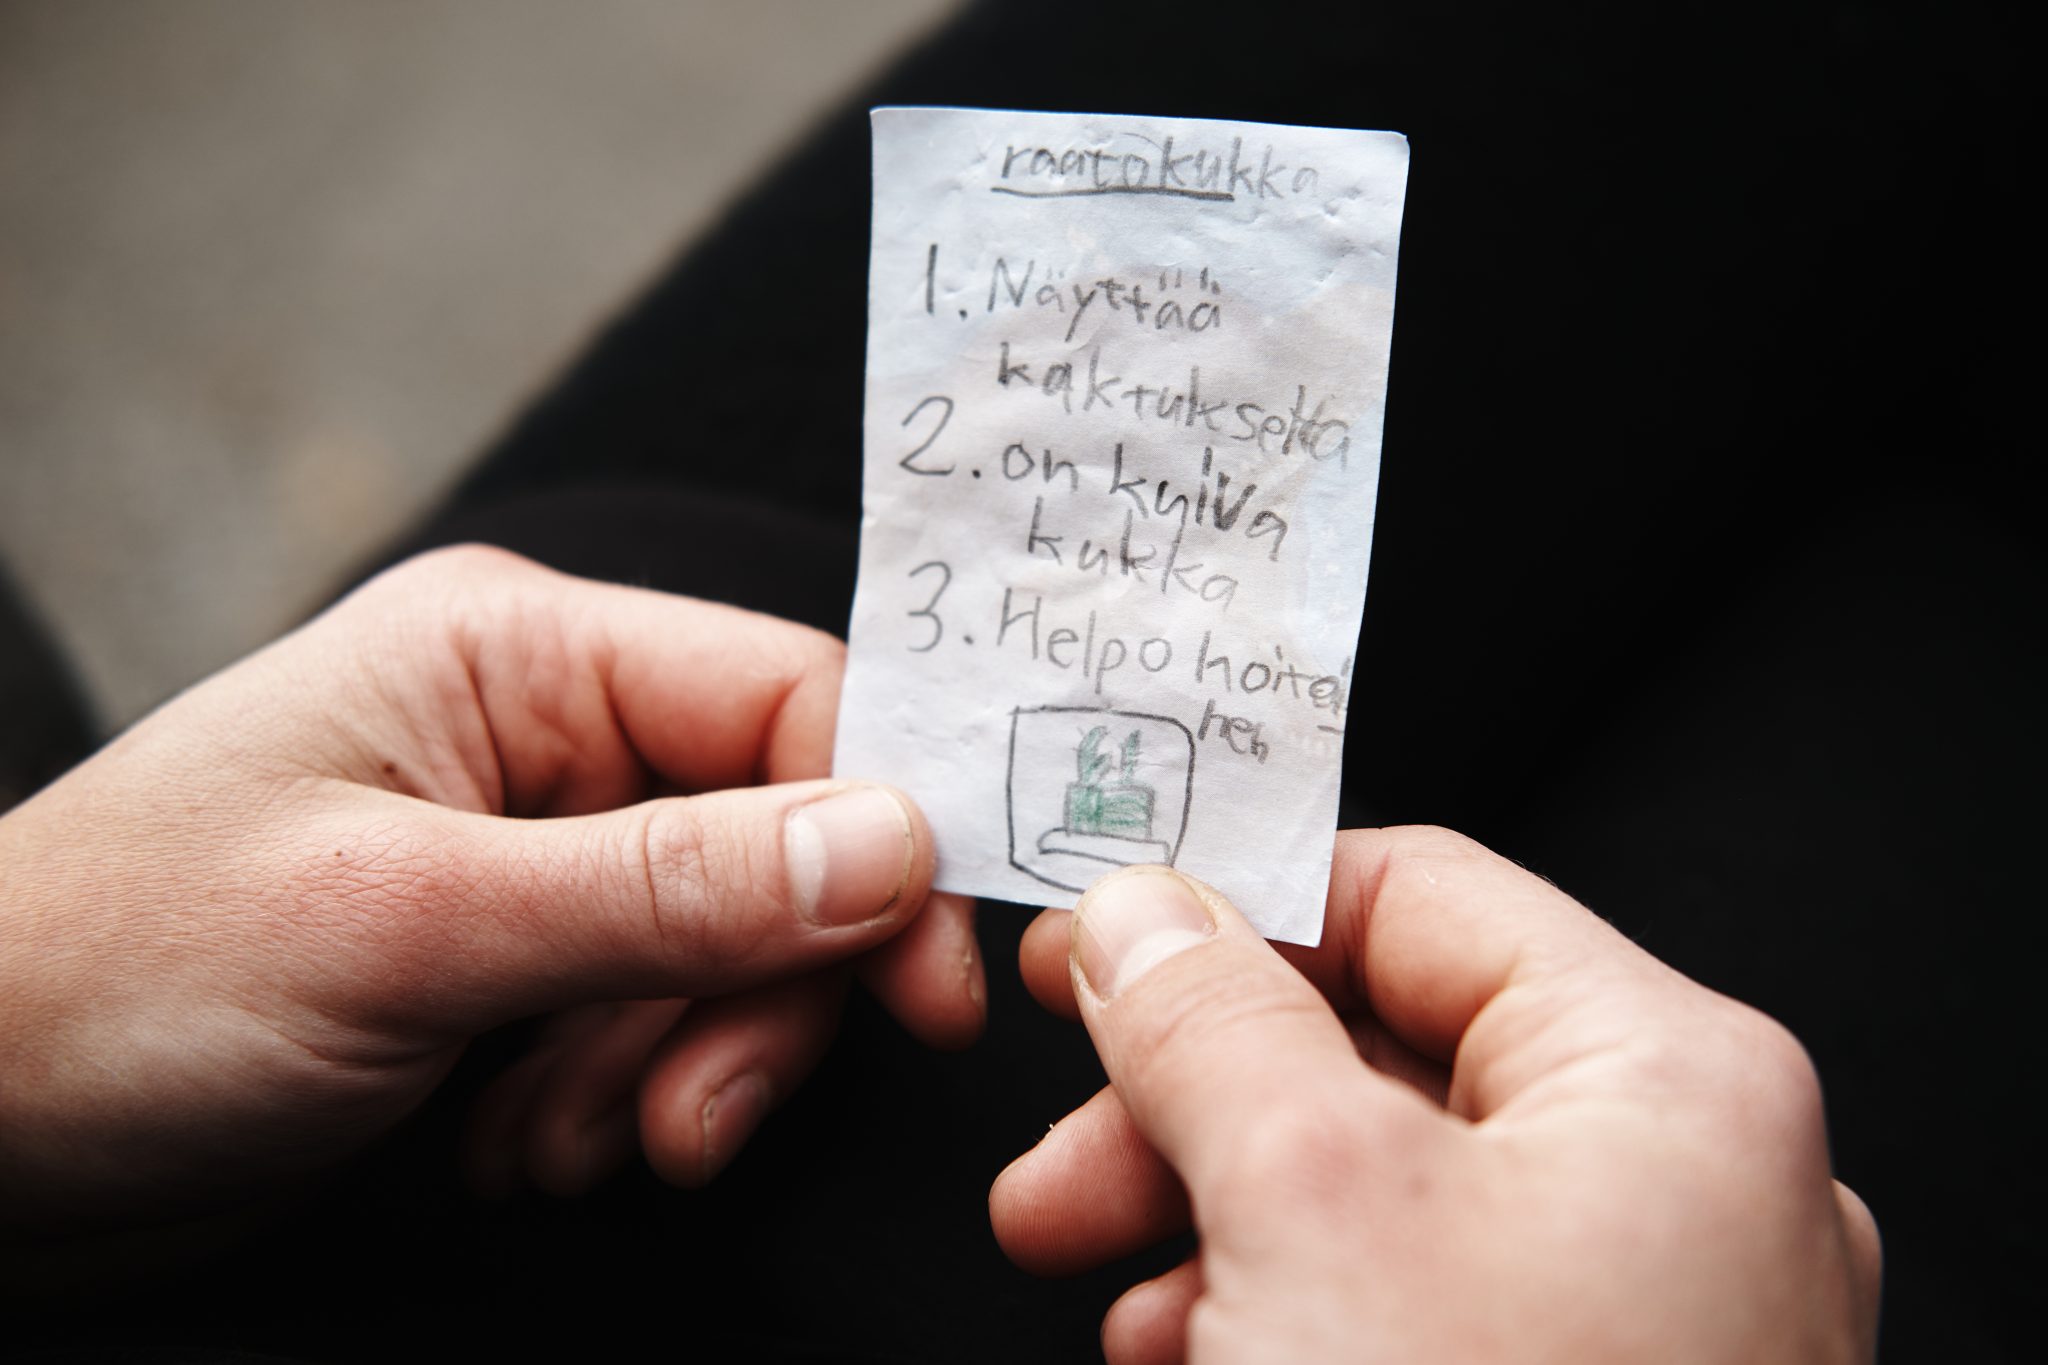 raatokukka
1. Näyttää
kaktukselta
2. on kuiva
kukka
3. Helpo hoitaa
nen